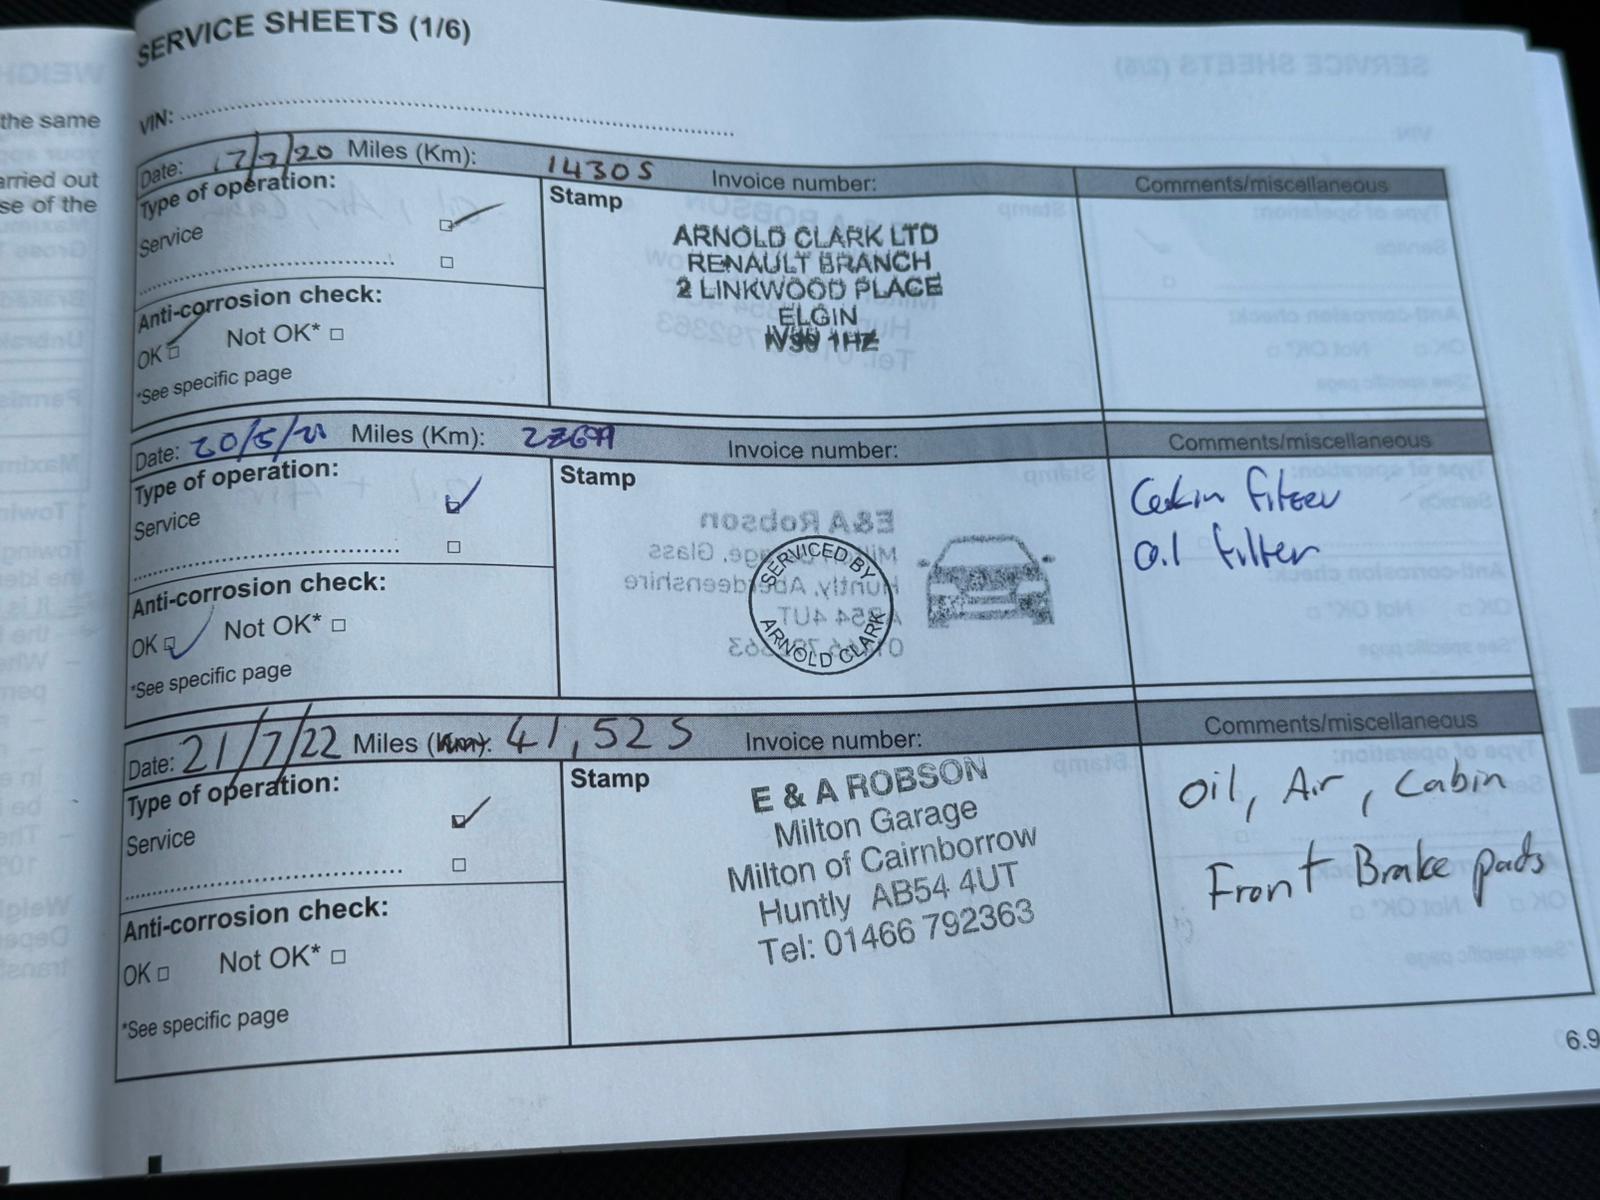 SERVICE SHEETS (1/6)
VIN:
Date: 17/7/20 Miles (Km): 14305 Invoice number: Comments/miscellaneous
Type of operation:
Stamp
Service
ARNOLD CLARK LTD
RENAULT BRANCH
2 LINKWOOD PLACE
ELGIN
IV30 1HZ
Anti-corrosion check:
OK Not OK*
*See specific page
Date: 20/5/21 Miles (Km): Invoice number: Comments/miscellaneous
Type of operation:
Stamp
Service
SERVICED BY
ARNOLD CLARK
Cabin filter
oil filter
Anti-corrosion check:
OK Not OK*
*See specific page
Date: 21/7/22 Miles (Km): 41,525 Invoice number: Comments/miscellaneous
Type of operation:
Stamp
Service
E & A ROBSON
Milton Garage
Milton of Cairnborrow
Huntly AB54 4UT
Tel: 01466 792363
Oil, Air, Cabin
Front Brake pads
Anti-corrosion check:
OK Not OK*
*See specific page
6.9
the same
arried out
se of the